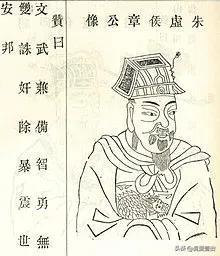 朱虛侯章公像
贊曰
文武兼備智勇無
雙誅奸除暴震世
安邦
头条